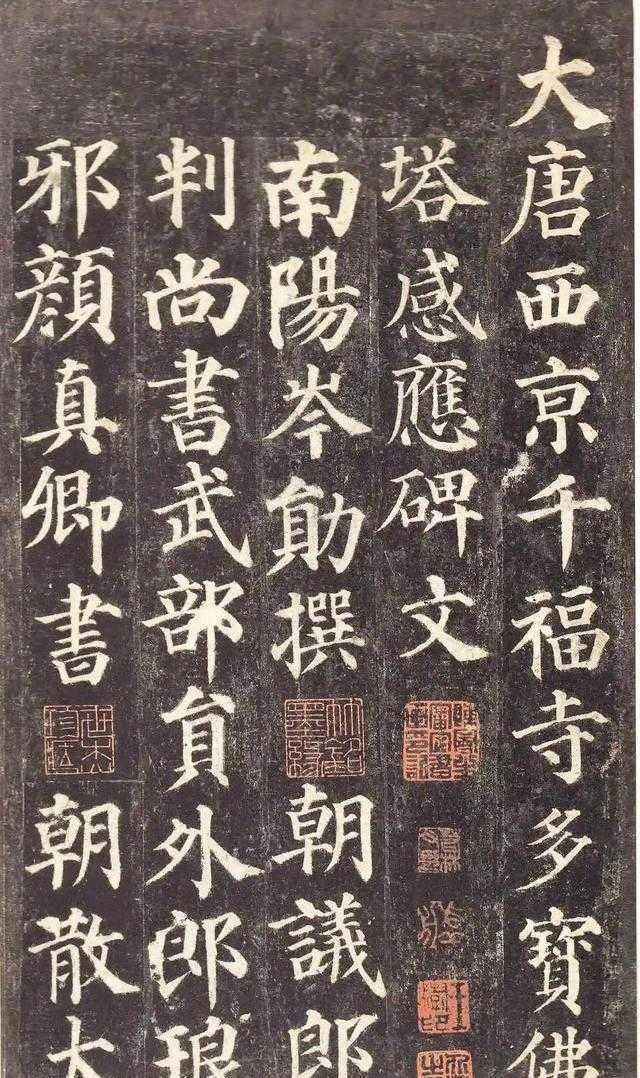 大唐西京千福寺多寳佛
塔感應碑文
南陽岑勛撰 朝議郎
判尚書武部員外郎琅
邪顔真卿書 朝散大